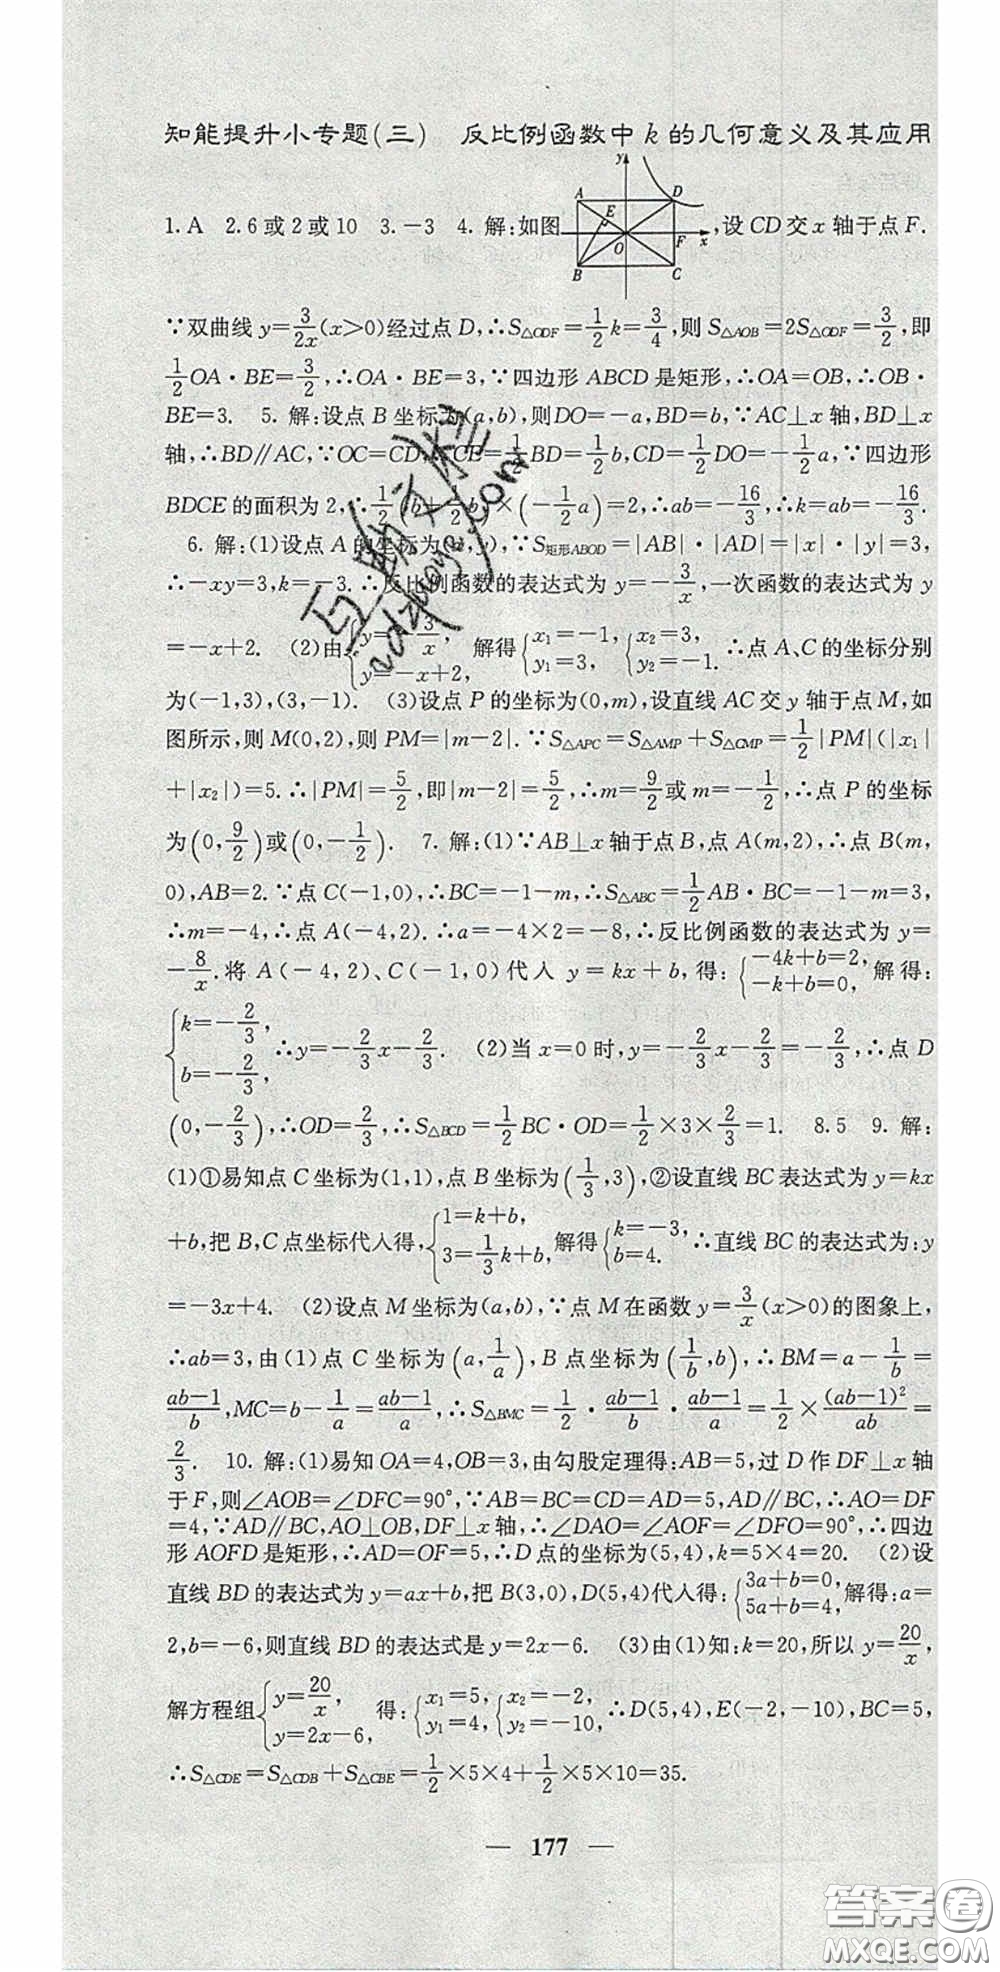 知能提升小专题(三) 反比例函数中k的几何意义及其应用
1.A 2.6或2或10 3.-3 4.解:如图 ,设CD交x轴于点F.
y A D E O F x B C
∵双曲线y=3/2x(x>0)经过点D,∴S△ODF=1/2k=3/4,则S△AOB=2S△ODF=3/2,即
1/2OA·BE=3/2,∴OA·BE=3,∵四边形ABCD是矩形,∴OA=OB,∴OB·
BE=3. 5.解:设点B坐标为(a,b),则DO=-a,BD=b,∵AC⊥x轴,BD⊥x
轴,∴BD∥AC,∵OC=CD,∴CE=1/2BD=1/2b,CD=1/2DO=-1/2a,∵四边形
BDCE的面积为2,∴1/2(b+1/2b)×(-1/2a)=2,∴ab=-16/3,∴k=ab=-16/3.
6.解:(1)设点A的坐标为(x,y),∵S矩形ABOD=|AB|·|AD|=|x|·|y|=3,
∴-xy=3,k=-3.∴反比例函数的表达式为y=-3/x,一次函数的表达式为y
=-x+2. (2)由{y=-3/x, y=-x+2, 解得{x₁=-1, y₁=3, {x₂=3, y₂=-1. ∴点A、C的坐标分别
为(-1,3),(3,-1). (3)设点P的坐标为(0,m),设直线AC交y轴于点M,如
图所示,则M(0,2),则PM=|m-2|.∵S△APC=S△AMP+S△CMP=1/2|PM|(|x₁|
+|x₂|)=5.∴|PM|=5/2,即|m-2|=5/2,∴m=9/2或m=-1/2,∴点P的坐标
为(0,9/2)或(0,-1/2). 7.解:(1)∵AB⊥x轴于点B,点A(m,2),∴点B(m,
0),AB=2.∵点C(-1,0),∴BC=-1-m,∴S△ABC=1/2AB·BC=-1-m=3,
∴m=-4,∴点A(-4,2).∴a=-4×2=-8,∴反比例函数的表达式为y=
-8/x.将A(-4,2)、C(-1,0)代入y=kx+b,得:{-4k+b=2, -k+b=0, 解得:
{k=-2/3, b=-2/3, ∴y=-2/3x-2/3. (2)当x=0时,y=-2/3x-2/3=-2/3,∴点D
(0,-2/3),∴OD=2/3,∴S△BCD=1/2BC·OD=1/2×3×2/3=1. 8.5 9.解:
(1)①易知点C坐标为(1,1),点B坐标为(1/3,3),②设直线BC表达式为y=kx
+b,把B,C点坐标代入得,{1=k+b, 3=1/3k+b, 解得{k=-3, b=4. ∴直线BC的表达式为:y
=-3x+4. (2)设点M坐标为(a,b),∵点M在函数y=3/x(x>0)的图象上,
∴ab=3,由(1)点C坐标为(a,1/a),B点坐标为(1/b,b),∴BM=a-1/b=
ab-1/b,MC=b-1/a=ab-1/a,∴S△BMC=1/2·ab-1/b·ab-1/a=1/2×(ab-1)²/ab=
2/3. 10.解:(1)易知OA=4,OB=3,由勾股定理得:AB=5,过D作DF⊥x轴
于F,则∠AOB=∠DFC=90°,∵AB=BC=CD=AD=5,AD∥BC,∴AO=DF
=4,∵AD∥BC,AO⊥OB,DF⊥x轴,∴∠DAO=∠AOF=∠DFO=90°,∴四边
形AOFD是矩形,∴AD=OF=5,∴D点的坐标为(5,4),k=5×4=20. (2)设
直线BD的表达式为y=ax+b,把B(3,0),D(5,4)代入得:{3a+b=0, 5a+b=4, 解得:a=
2,b=-6,则直线BD的表达式是y=2x-6. (3)由(1)知:k=20,所以y=20/x,
解方程组{y=20/x, y=2x-6, 得:{x₁=5, y₁=4, {x₂=-2, y₂=-10, ∴D(5,4),E(-2,-10),BC=5,
∴S△CDE=S△CDB+S△CBE=1/2×5×4+1/2×5×10=35.
— 177 —
答案圈
MXQE.COM